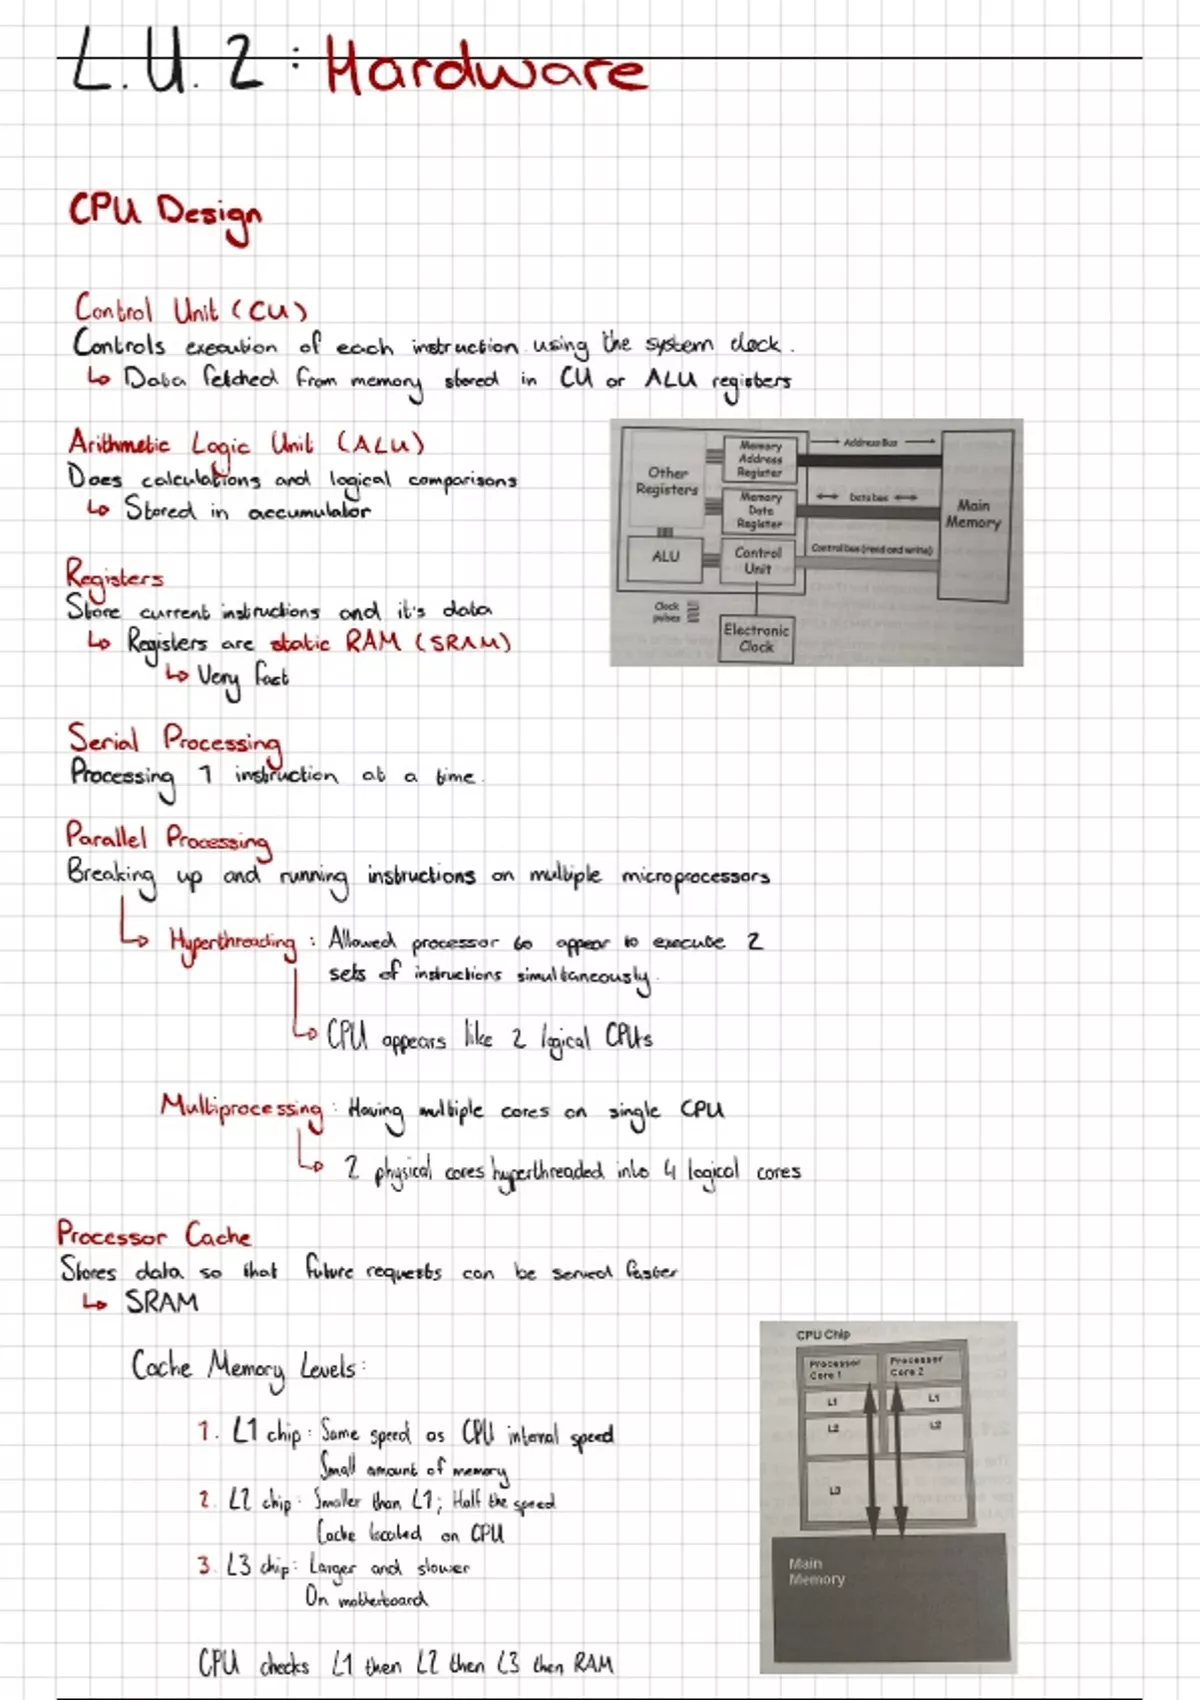 L.U. 2 : Hardware
CPU Design
Control Unit (CU)
Controls execution of each instruction using the system clock.
↳ Data fetched from memory stored in CU or ALU registers
Arithmetic Logic Unit (ALU)
Does calculations and logical comparisons
↳ Stored in accumulator
Other
Registers
Memory
Address
Register
Address Bus
Memory
Data
Register
Data bus
Main
Memory
ALU
Control
Unit
Control bus (read and write)
Clock
pulses
Electronic
Clock
Registers
Store current instructions and it's data
↳ Registers are static RAM (SRAM)
↳ Very fast
Serial Processing
Processing 1 instruction at a time.
Parallel Processing
Breaking up and running instructions on multiple microprocessors
↳ Hyperthreading : Allowed processor to appear to execute 2
sets of instructions simultaneously.
↳ CPU appears like 2 logical CPUs
Multiprocessing : Having multiple cores on single CPU
↳ 2 physical cores hyperthreaded into 4 logical cores
Processor Cache
Stores data so that future requests can be served faster
↳ SRAM
Cache Memory Levels:
1. L1 chip : Same speed as CPU internal speed
Small amount of memory
2. L2 chip : Smaller than L1; Half the speed
Cache located on CPU
3. L3 chip : Larger and slower
On motherboard
CPU checks L1 then L2 then L3 then RAM
CPU Chip
Processor
Core 1
Processor
Core 2
L1
L1
L2
L2
L3
Main
Memory